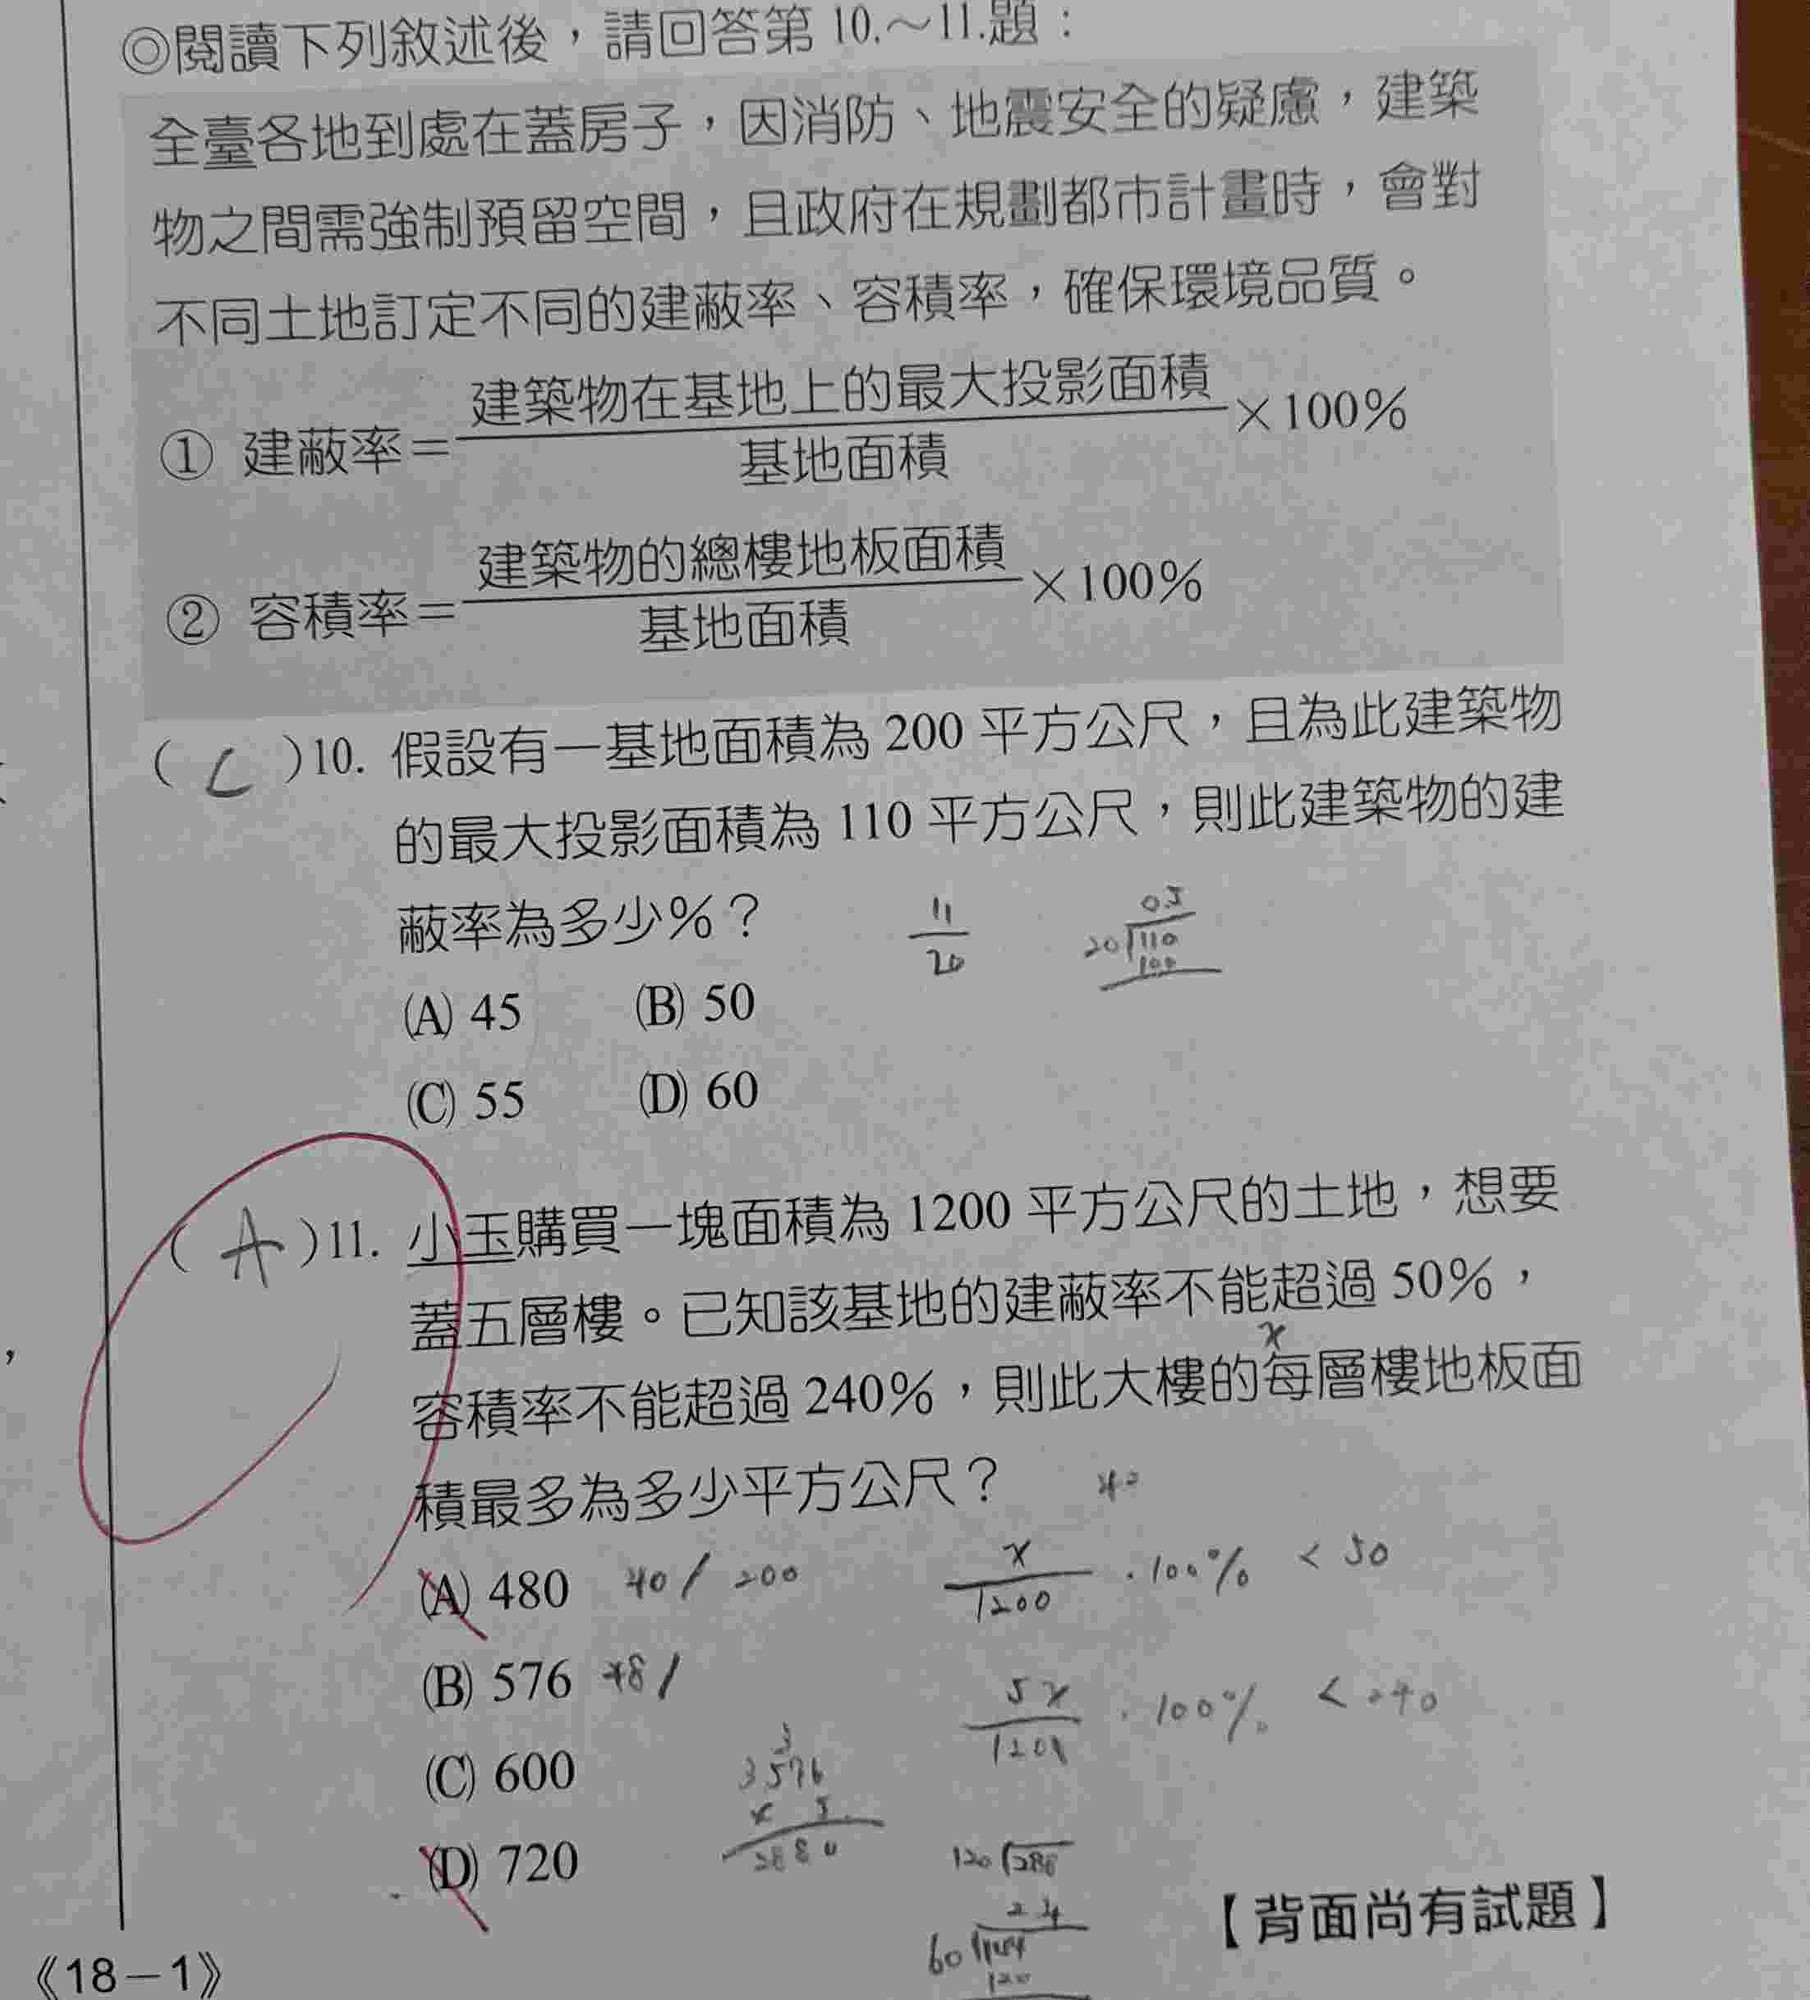 ◎閱讀下列敘述後，請回答第 10.～11.題：
全臺各地到處在蓋房子，因消防、地震安全的疑慮，建築
物之間需強制預留空間，且政府在規劃都市計畫時，會對
不同土地訂定不同的建蔽率、容積率，確保環境品質。
① 建蔽率＝建築物在基地上的最大投影面積/基地面積×100%
② 容積率＝建築物的總樓地板面積/基地面積×100%
（ C ）10. 假設有一基地面積為 200 平方公尺，且為此建築物
的最大投影面積為 110 平方公尺，則此建築物的建
蔽率為多少%？
11/20
0.5
20 110
100
(A) 45 (B) 50
(C) 55 (D) 60
（ A ）11. 小玉購買一塊面積為 1200 平方公尺的土地，想要
蓋五層樓。已知該基地的建蔽率不能超過 50%，
x
容積率不能超過 240%，則此大樓的每層樓地板面
積最多為多少平方公尺？
(A) 480 40 / 200
x/1200 · 100% < 50
(B) 576 48 /
5x/1200 · 100% < 240
(C) 600
576
x 5
2880
(D) 720
120 288
24
60 144
120
【背面尚有試題】
《18－1》